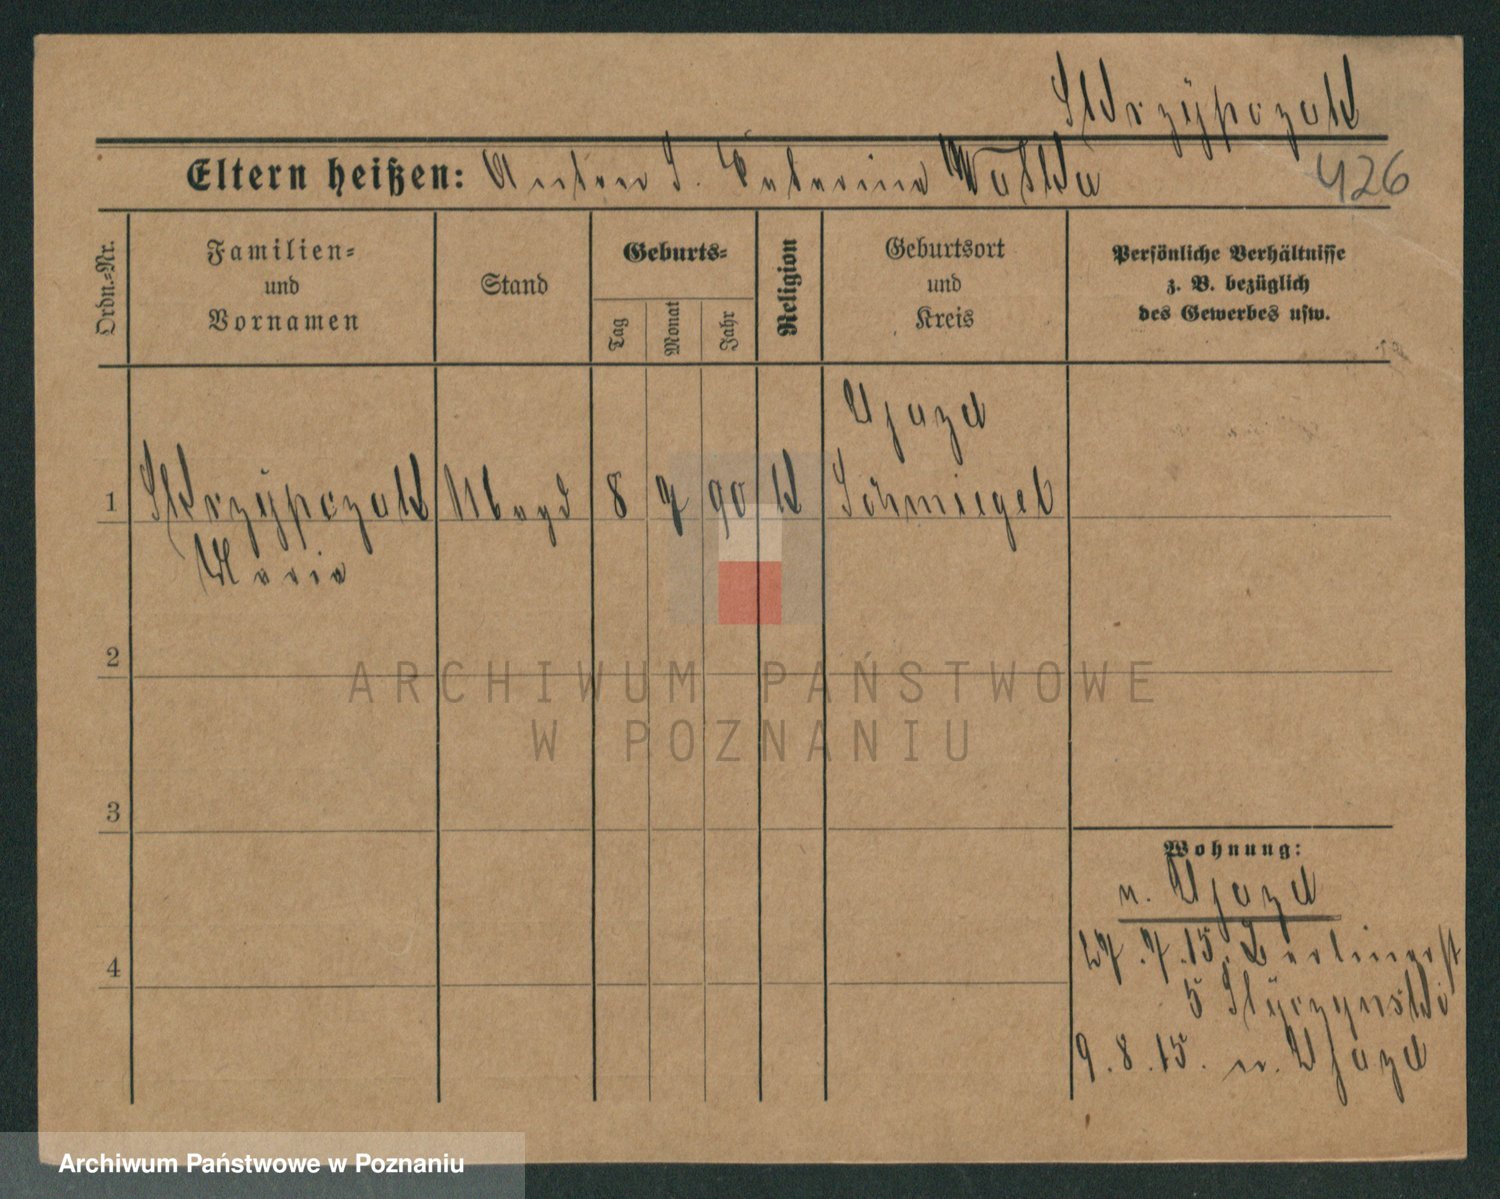 Skrzypczak
Eltern heißen: Anton S. Katarina Walska
426
Ordn.-Nr.
Familien-
und
Vornamen
Stand
Geburts-
Tag
Monat
Jahr
Religion
Geburtsort
und
Kreis
Persönliche Verhältnisse
z. B. bezüglich
des Gewerbes usw.
Ujazd
1 Skrzypczak Magd 8 7 90 k Schmiegel
Maria
2
ARCHIWUM PAŃSTWOWE
W POZNANIU
3
Wohnung:
n. Ujazd
4
27.7.15. Berlinerst
5 Styczynski
9.8.15. n. Ujazd
Archiwum Państwowe w Poznaniu